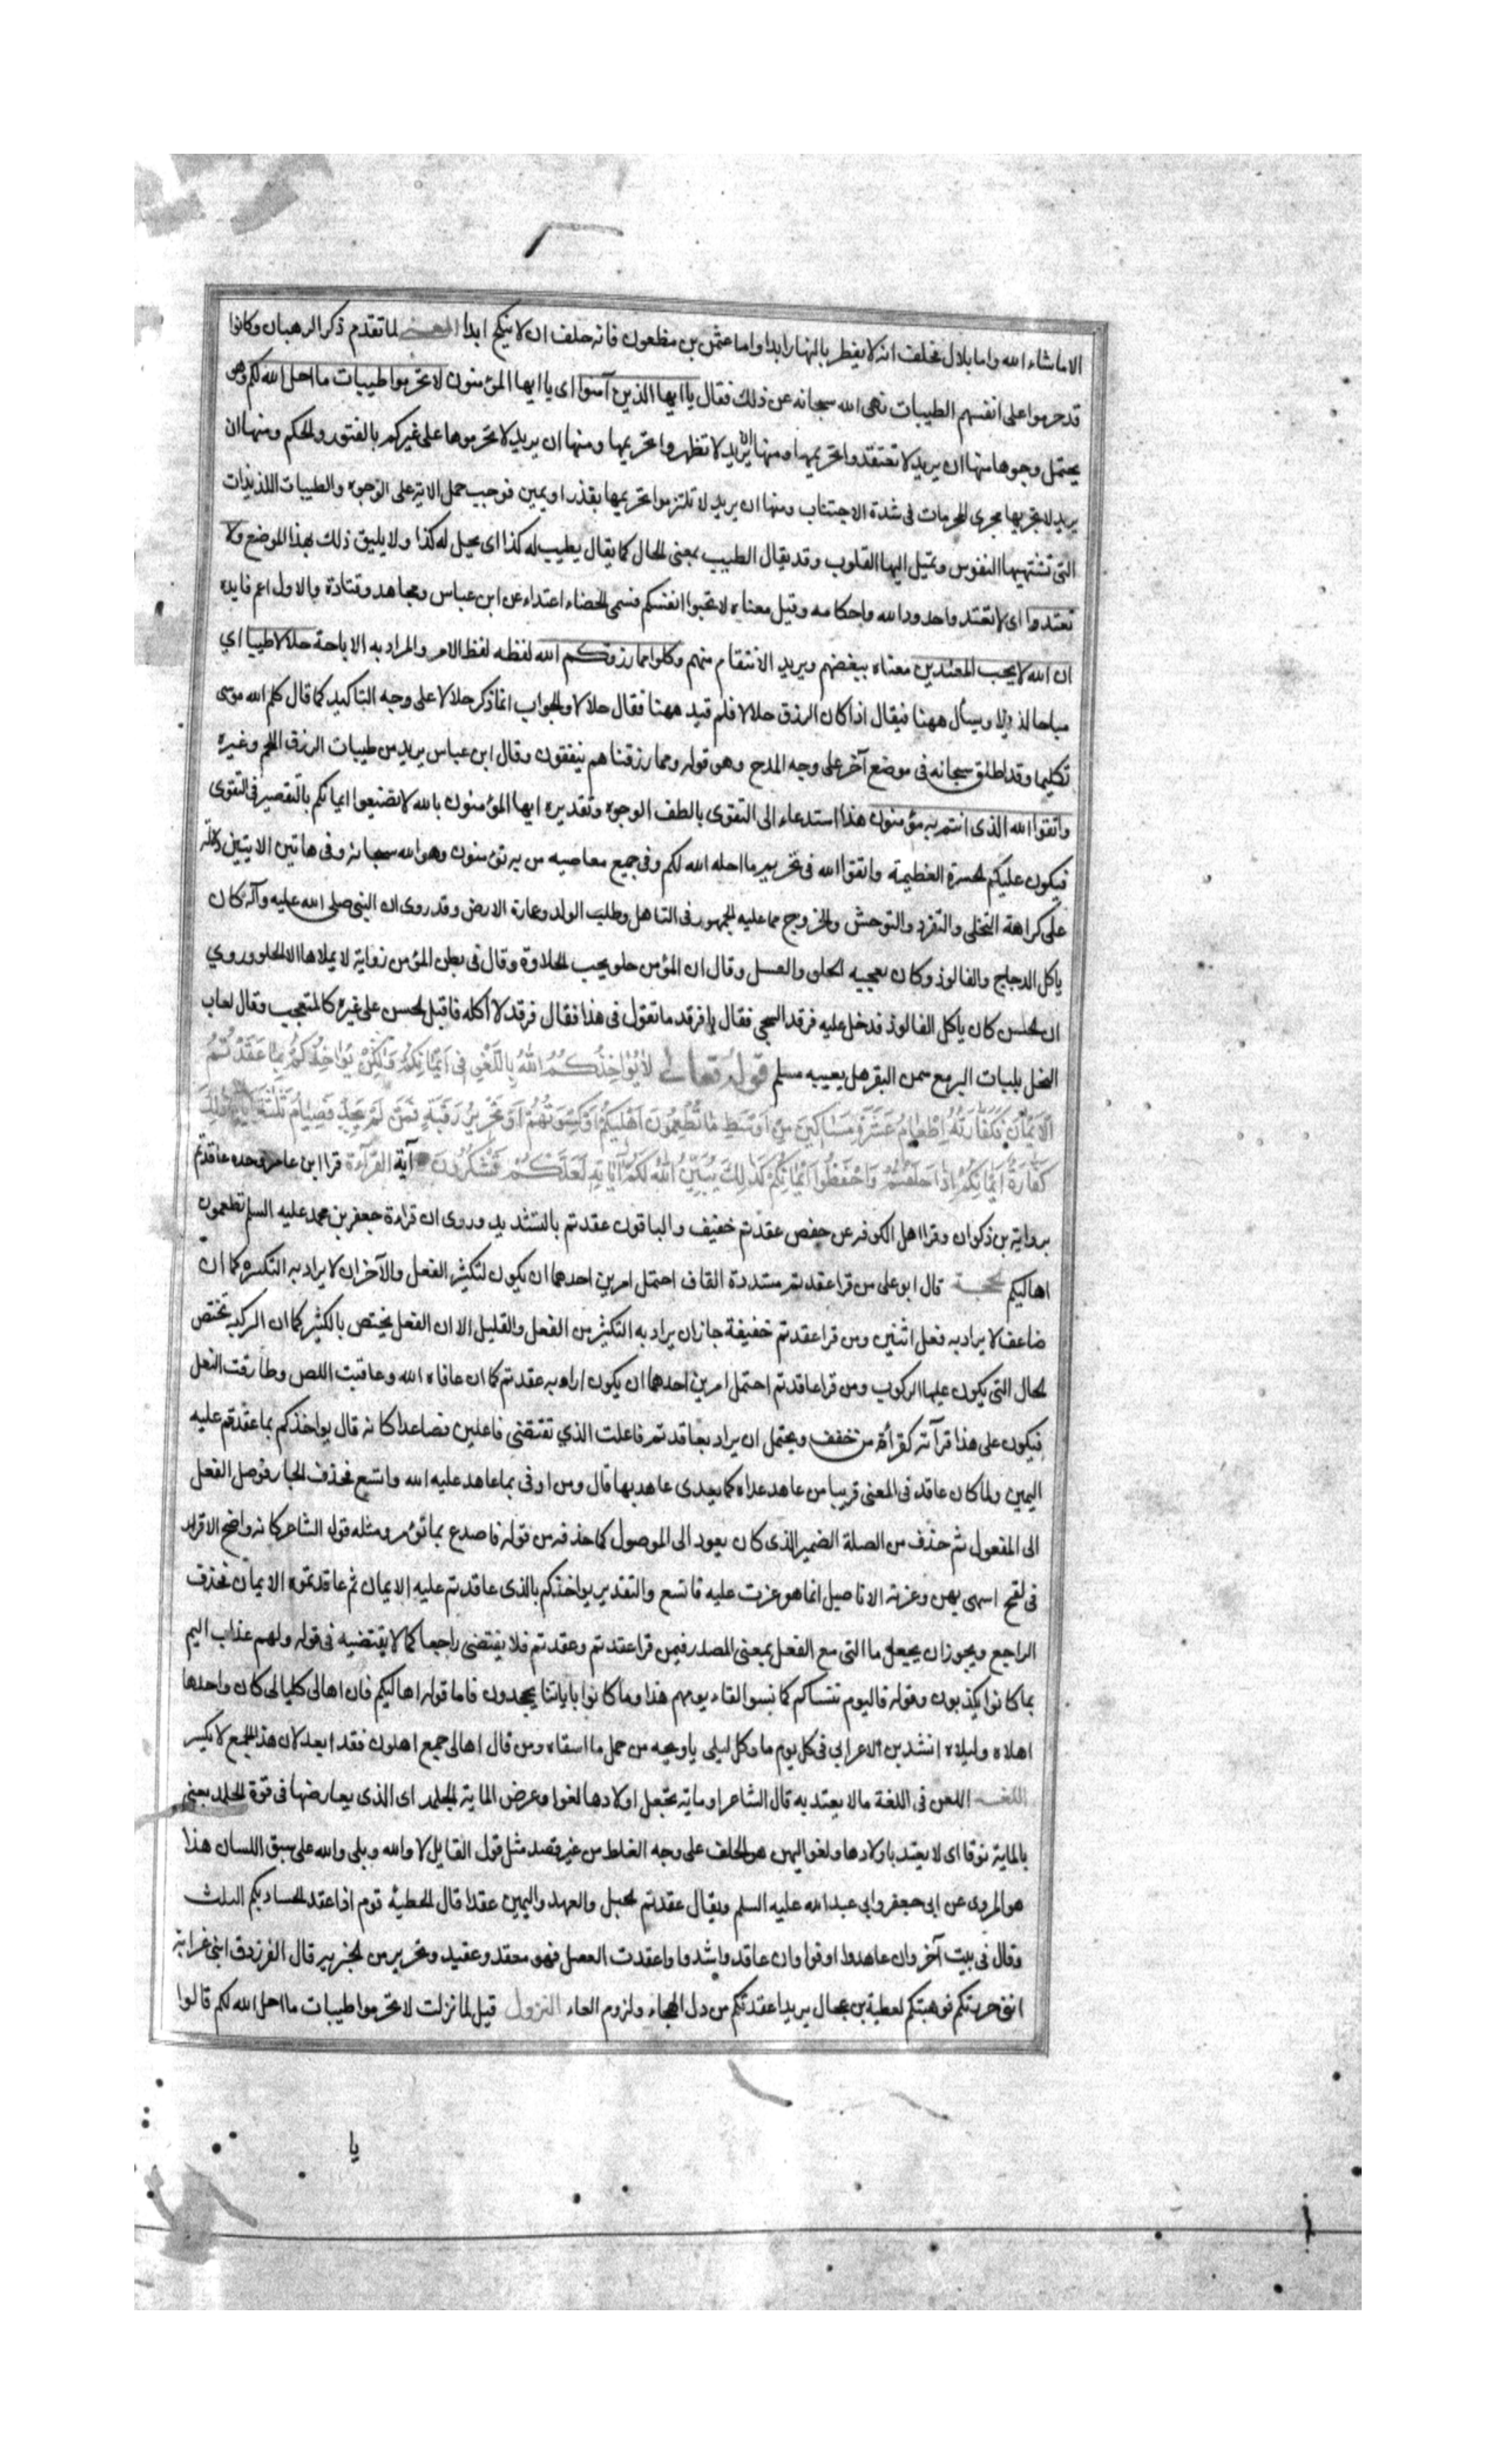 الا ماشاء الله واما بلال فحلف انه لا يفطر بالنهار ابدا واما عثمن بن مظعون فانه حلف ان لا ينكح ابدا المعنى لما تقدم ذكر الرهبان وكانوا
قد حرموا على انفسهم الطيبات نهى الله سبحانه عن ذلك فقال يا ايها الذين آمنوا اى يا ايها المؤمنون لا تحرموا طيبات ما احل الله لكم وهو
يحتمل وجوها منها ان يريد لا تعتقدوا تحريمها ومنها ان يريد لا تظهروا تحريمها ومنها ان يريد لا تحرموها على غيركم بالفتوى والحكم ومنها ان
يريد لا تجروها مجرى المحرمات فى شدة الاجتناب ومنها ان يريد لا تلتزموا تحريمها بنذر او يمين فوجب حمل الاية على الوجوه والطيبات اللذيذات
التى تشتهيها النفوس وتميل اليها القلوب وقد يقال الطيب بمعنى الحلال كما يقال يطيب له كذا اى يحل له كذا ولا يليق ذلك بهذا الموضع ولا
تعتدوا اى لا تعتدوا حدود الله واحكامه وقيل معناه لا تجبوا انفسكم فسمى الخصاء اعتداء عن ابن عباس ومجاهد وقتادة والاول اعم فايده
ان الله لا يحب المعتدين معناه يبغضهم ويريد الانتقام منهم وكلوا مما رزقكم الله لفظه لفظ الامر والمراد به الاباحة حلالا طيبا اي
مباحا لذيذا ويسأل ههنا فيقال اذا كان الرزق حلالا فلم قيد ههنا فقال حلالا والجواب انما ذكر حلالا على وجه التاكيد كما قال كلم الله موسى
تكليما وقد اطلق سبحانه فى موضع آخر على وجه المدح وهو قوله ومما رزقناهم ينفقون وقال ابن عباس يريد من طيبات الرزق اللحم وغيره
واتقوا الله الذى انتم به مؤمنون هذا استدعاء الى التقوى بالطف الوجوه وتقديره ايها المؤمنون بالله لا تضيعوا ايمانكم بالتقصير فى التقوى
فيكون عليكم الحسرة العظيمة واتقوا الله فى تحريم ما احله الله لكم وفى جميع معاصيه من به تؤمنون وهو الله سبحانه وفى هاتين الايتين دلالة
على كراهة التخلى والتفرد والتوحش والخروج مما عليه الجمهور فى التاهل وطلب الولد وعمارة الارض وقد روى ان النبى صلى الله عليه وآله كان
ياكل الدجاج والفالوذ وكان يعجبه الحلو والعسل وقال ان المؤمن حلو يحب الحلاوة وقال فى بطن المؤمن زواية لا يملاها الا الحلو وروي
ان الحسن كان ياكل الفالوذ فدخل عليه فرقد السبخي فقال يا فرقد ما تقول فى هذا فقال فرقد لا آكله فاقبل الحسن على غيره كالمتعجب وقال لعاب
النحل بلباب البر مع سمن البقر هل يعيبه مسلم قوله تعالى لَا يُؤَاخِذُكُمُ اللهُ بِاللَّغْوِ فِى اَيْمَانِكُمْ وَلَكِنْ يُؤَاخِذُكُمْ بِمَا عَقَدْتُمُ
الْاَيْمَانَ فَكَفَّارَتُهُ اِطْعَامُ عَشَرَةِ مَسَاكِينَ مِنْ اَوْسَطِ مَا تُطْعِمُونَ اَهْلِيكُمْ اَوْ كِسْوَتُهُمْ اَوْ تَحْرِيرُ رَقَبَةٍ فَمَنْ لَمْ يَجِدْ فَصِيَامُ ثَلثَةِ اَيَّامٍ ذَلِكَ
كَفَّارَةُ اَيْمَانِكُمْ اِذَا حَلَفْتُمْ وَاحْفَظُوا اَيْمَانَكُمْ كَذَلِكَ يُبَيِّنُ اللهُ لَكُمْ آيَاتِهِ لَعَلَّكُمْ تَشْكُرُونَ آية القرآءة قرا ابن عامر وحده عاقدتم
برواية بن ذكوان وقرا اهل الكوفه عن حفص عقدتم خفيف والباقون عقدتم بالتشديد وروى ان قراءة جعفر بن محمد عليه السلم تطعمون
اهاليكم الحجة قال ابو على من قرا عقدتم مشددة القاف احتمل امرين احدهما ان يكون لتكثير الفعل والآخر ان لا يراد به التكثير كما ان
ضاعف لا يراد به فعل اثنين ومن قرا عقدتم خفيفة جاز ان يراد به التكثير من الفعل والقليل الا ان الفعل يختص بالكثير كما ان الركبة تختص
الحال التى يكون عليها الركوب ومن قرا عاقدتم احتمل امرين احدهما ان يكون اراد به عقدتم كما ان عافاه الله وعاقبت اللص وطارقت النعل
فيكون على هذا قرآته كقرأة من خفف ويحتمل ان يراد بعاقدتم فاعلت الذي تقتضى فاعلين فصاعدا كانه قال يواخذكم بما عقدتم عليه
اليمين ولما كان عاقد فى المعنى قريبا من عاهد عداه كما يعدى عاهد بها قال ومن اوفى بما عاهد عليه الله واتسع فحذف الجار فوصل الفعل
الى المفعول ثم حذف من الصلة الضمير الذى كان يعود الى الموصول كما حذفه من قوله فاصدع بما تؤمر ومثله قول الشاعر كانه واضح الاقراب
فى لقح اسمى بهن وعزته الاناصيل انما هو عزت عليه فاتسع والتقدير يواخذكم بالذى عاقدتم عليه الايمان ثم عاقدتموه الايمان فحذف
الراجع ويجوز ان يجعل ما التى مع الفعل بمعنى المصدر فيمن قرا عقدتم وعقدتم فلا يقتضى راجعا كما لا يقتضيه فى قوله ولهم عذاب اليم
بما كانوا يكذبون وقوله فاليوم ننساكم كما نسوا لقاء يومهم هذا وما كانوا باياتنا يجحدون فاما قوله اهاليكم فان اهالى كليالى كان واحدها
اهلاه وليلاه انشد بن الاعرابي فى كل يوم ما وكل ليلى ياويحه من جمل ما اسقاه ومن قال اهالى جميع اهلون فقد ابعد لان هذا الجمع لا يكسر
اللغة اللغو فى اللغة ما لا يعتد به قال الشاعر او مائة تجعل اولادها لغوا وعرض الماية الجلمد اى الذى يعارضها فى قوة الجلمد يعنى
بالماية نوقا اى لا يعتد باولادها ولغو اليمن هو الحلف على وجه الغلط من غير قصد مثل قول القايل لا والله وبلى والله على سبق اللسان هذا
هو المروى عن ابى جعفر وابي عبد الله عليه السلم ويقال عقدتم الحبل والعهد واليمين عقدا قال الحطيئة قوم اذا عقد
وقال فى بيت آخر وان عاهدوا اوفوا وان عاقدوا شدوا واعقدت العسل فهو معقد وعقيد وتحرير من قال الفرزدق ابنى غدانة
اننى حررتكم فوهبتكم لعطية بن جعال يريد اعتقدتكم من ذل الهجاء ولزوم العاء النزول قيل لما نزلت لا تحرموا طيبات ما احل الله لكم قالوا
يا